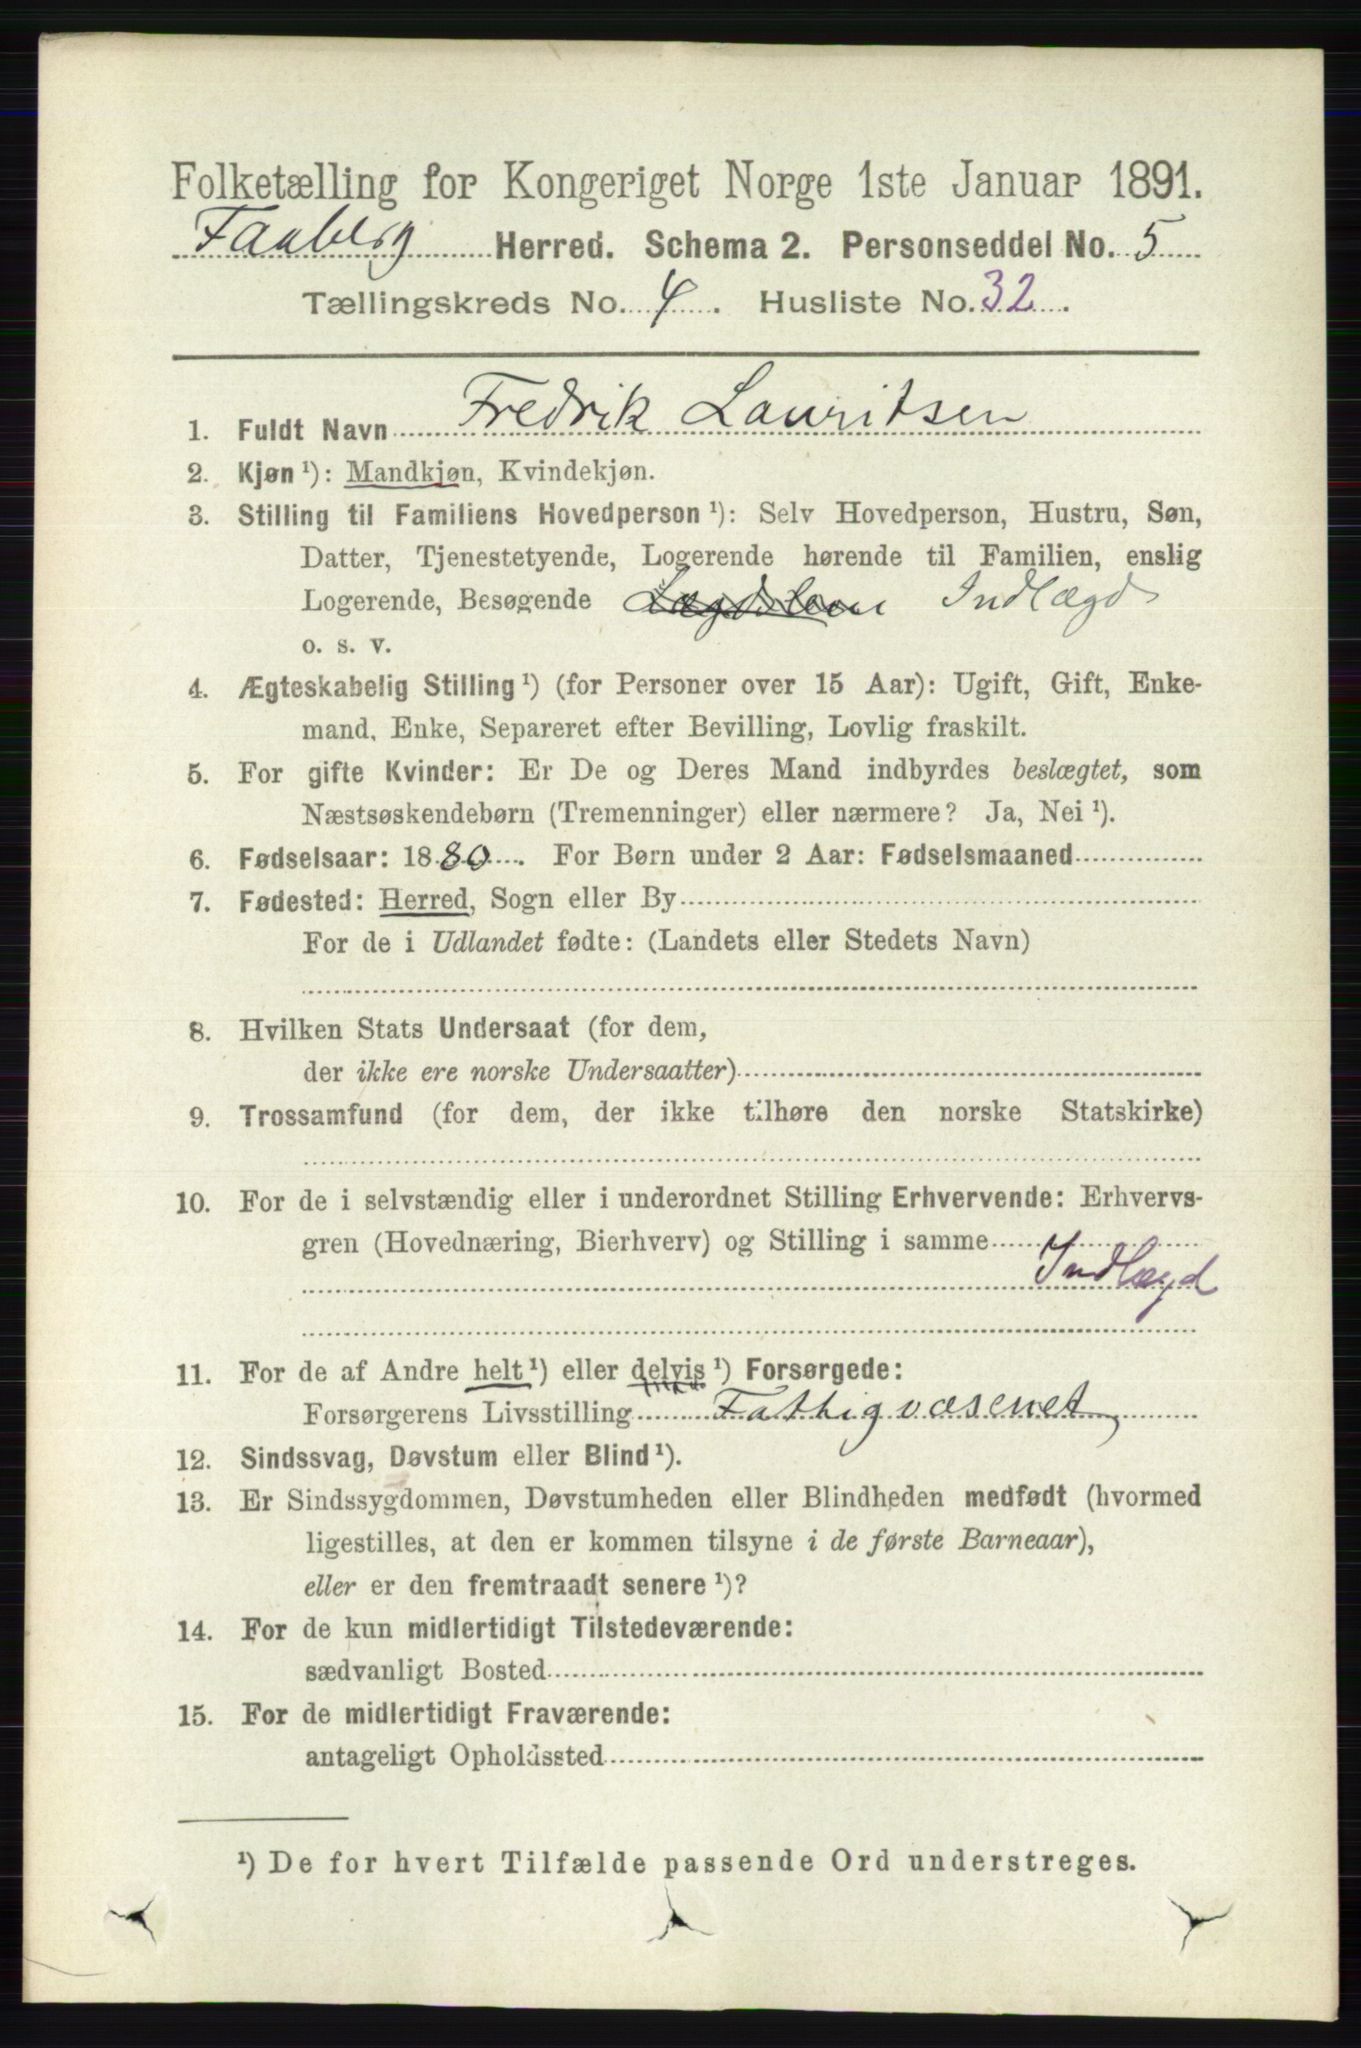 Folketælling for Kongeriget Norge 1ste Januar 1891.
Faaberg Herred. Schema 2. Personseddel No. 5
Tællingskreds No. 4. Husliste No. 32.
1. Fuldt Navn Fredrik Lauritsen
2. Kjøn ¹): Mandkjøn, Kvindekjøn.
3. Stilling til Familiens Hovedperson ¹): Selv Hovedperson, Hustru, Søn,
Datter, Tjenestetyende, Logerende hørende til Familien, enslig
Logerende, Besøgende Indlægd
o. s. v.
4. Ægteskabelig Stilling ¹) (for Personer over 15 Aar): Ugift, Gift, Enke-
mand, Enke, Separeret efter Bevilling, Lovlig fraskilt.
5. For gifte Kvinder: Er De og Deres Mand indbyrdes beslægtet, som
Næstsøskendebørn (Tremenninger) eller nærmere? Ja, Nei ¹).
6. Fødselsaar: 1880. For Børn under 2 Aar: Fødselsmaaned
7. Fødested: Herred, Sogn eller By
For de i Udlandet fødte: (Landets eller Stedets Navn)
8. Hvilken Stats Undersaat (for dem,
der ikke ere norske Undersaatter)
9. Trossamfund (for dem, der ikke tilhøre den norske Statskirke)
10. For de i selvstændig eller i underordnet Stilling Erhvervende: Erhvervs-
gren (Hovednæring, Bierhverv) og Stilling i samme
Indlægd
11. For de af Andre helt ¹) eller delvis ¹) Forsørgede:
Forsørgerens Livsstilling Fattigvæsenet
12. Sindssvag, Døvstum eller Blind ¹).
13. Er Sindssygdommen, Døvstumheden eller Blindheden medfødt (hvormed
ligestilles, at den er kommen tilsyne i de første Barneaar),
eller er den fremtraadt senere ¹)?
14. For de kun midlertidigt Tilstedeværende:
sædvanligt Bosted
15. For de midlertidigt Fraværende:
antageligt Opholdssted
¹) De for hvert Tilfælde passende Ord understreges.